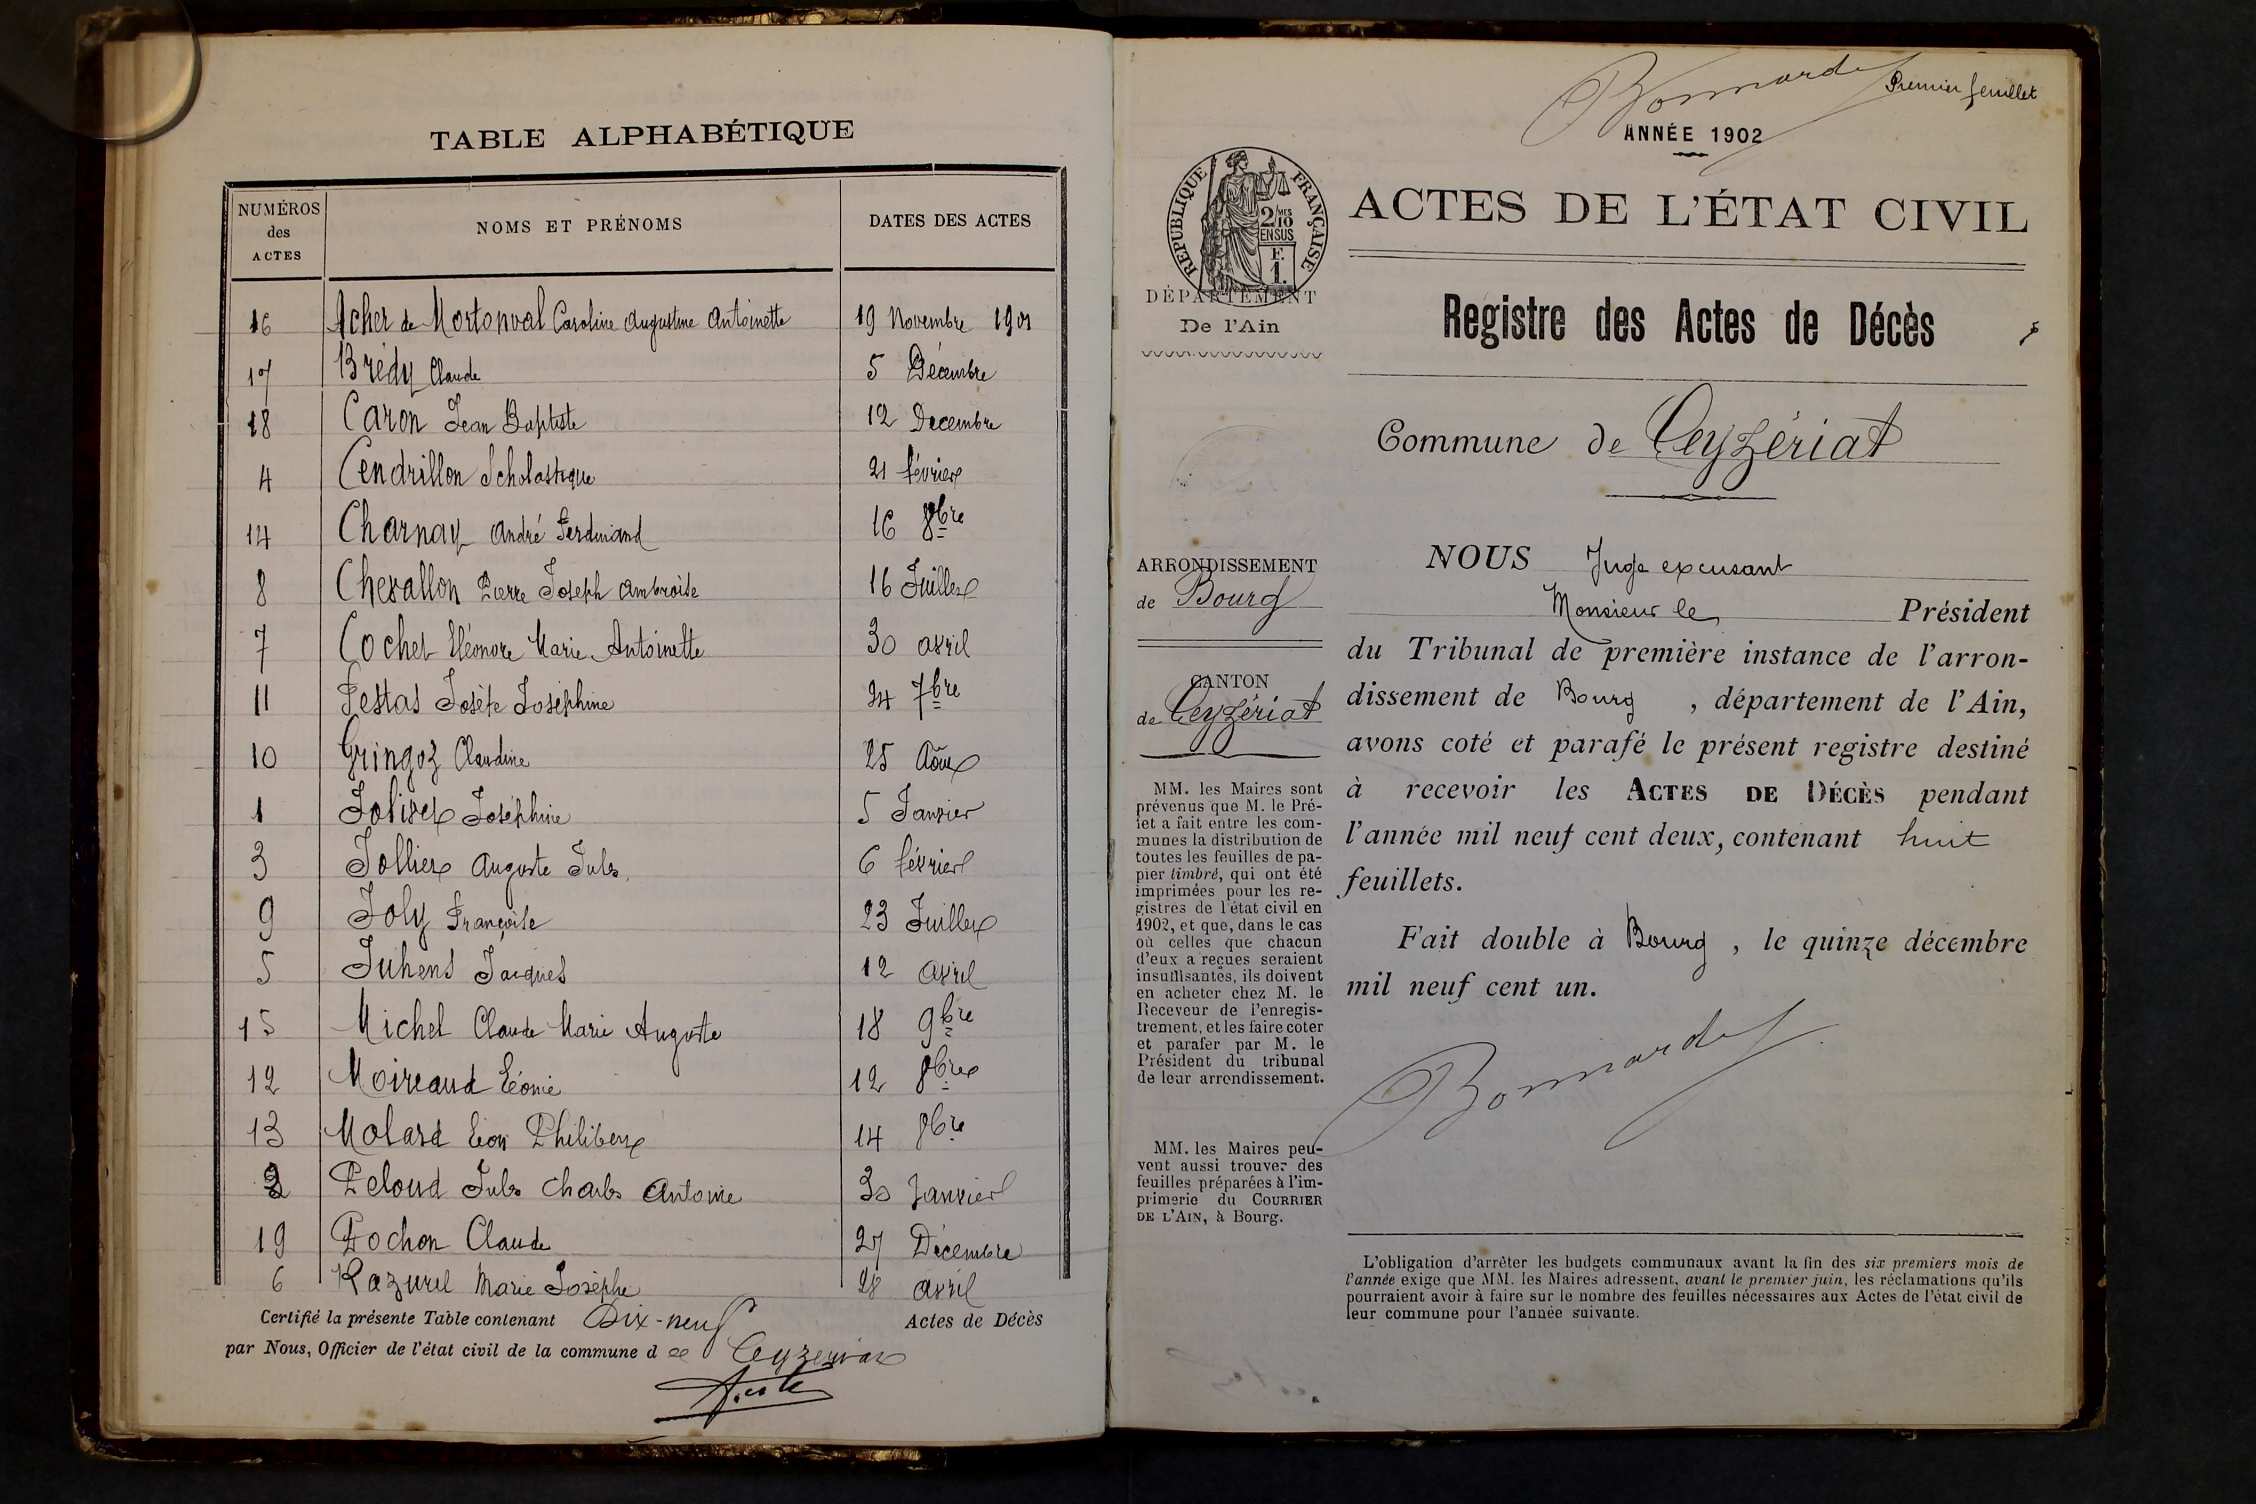 TABLE ALPHABÉTIQUE
NUMÉROS des ACTES NOMS ET PRÉNOMS DATES DES ACTES
16 Acher de Mortonval Caroline Augustine Antoinette 19 Novembre 1901
17 Brédy Claude 5 Décembre
18 Caron Jean Baptiste 12 Decembre
4 Cendrillon Scholastique 21 février
14 Charnay André Ferdinand 16 8bre
8 Chevallon Pierre Joseph Ambroise 16 Juillet
7 Cochet Eléonore Marie Antoinette 30 avril
11 Festas Josèfe Joséphine 24 7bre
10 Gringoz Claudine 25 Août
1 Jolivet Joséphine 5 Janvier
3 Jollier Auguste Jules 6 février
9 Joly Françoise 23 Juillet
5 Juhens Jacques 12 avril
15 Michel Claude Marie Auguste 18 9bre
12 Moiraud Léonie 12 8bre
13 Molard Léon Philibert 14 8bre
2 Peloud Jules Charles Antoine 30 Janvier
19 Pochon Claude 27 Décembre
6 Razurel Marie Josèphe 28 avril
Certifié la présente Table contenant Dix-neuf Actes de Décès
par Nous, Officier de l'état civil de la commune de Ceyzériat
Bonnardet Premier feuillet
ANNÉE 1902
RÉPUBLIQUE FRANÇAISE
2/10 MES
EN SUS
F.
1.
ACTES DE L'ÉTAT CIVIL
DÉPARTEMENT
De l'Ain
Registre des Actes de Décès
Commune de Ceyzériat
ARRONDISSEMENT
de Bourg
CANTON
de Ceyzériat
MM. les Maires sont
prévenus que M. le Pré-
fet a fait entre les com-
munes la distribution de
toutes les feuilles de pa-
pier timbré, qui ont été
imprimées pour les re-
gistres de l'état civil en
1902, et que, dans le cas
où celles que chacun
d'eux a reçues seraient
insuffisantes, ils doivent
en acheter chez M. le
Receveur de l'enregis-
trement, et les faire coter
et parafer par M. le
Président du tribunal
de leur arrondissement.
MM. les Maires peu-
vent aussi trouver des
feuilles préparées à l'im-
primerie du COURRIER
DE L'AIN, à Bourg.
NOUS Juge excusant
Monsieur le Président
du Tribunal de première instance de l'arron-
dissement de Bourg , département de l'Ain,
avons coté et parafé le présent registre destiné
à recevoir les ACTES DE DÉCÈS pendant
l'année mil neuf cent deux, contenant huit
feuillets.
Fait double à Bourg , le quinze décembre
mil neuf cent un.
Bonnardet
L'obligation d'arrêter les budgets communaux avant la fin des six premiers mois de
l'année exige que MM. les Maires adressent, avant le premier juin, les réclamations qu'ils
pourraient avoir à faire sur le nombre des feuilles nécessaires aux Actes de l'état civil de
leur commune pour l'année suivante.